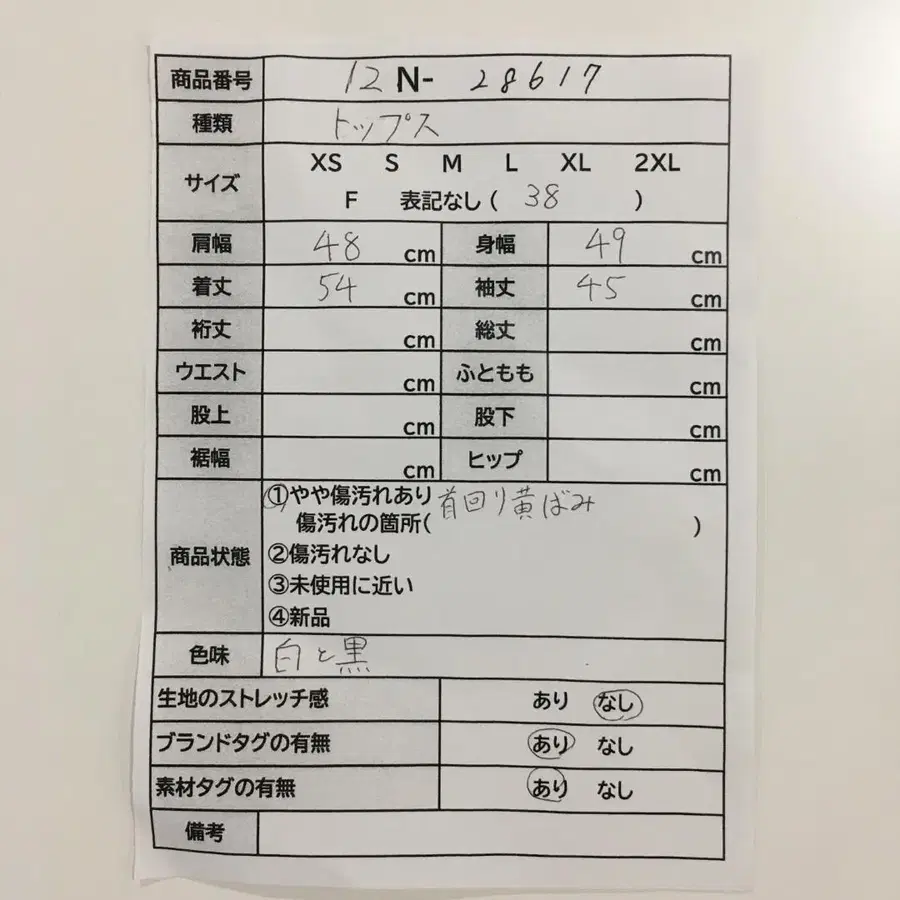 商品番号 12 N- 28617
種類 トップス
サイズ XS S M L XL 2XL
F 表記なし ( 38 )
肩幅 48 cm 身幅 49 cm
着丈 54 cm 袖丈 45 cm
裄丈 cm 総丈 cm
ウエスト cm ふともも cm
股上 cm 股下 cm
裾幅 cm ヒップ cm
商品状態 ①やや傷汚れあり 首回り黄ばみ
傷汚れの箇所( )
②傷汚れなし
③未使用に近い
④新品
色味 白と黒
生地のストレッチ感 あり なし
ブランドタグの有無 あり なし
素材タグの有無 あり なし
備考